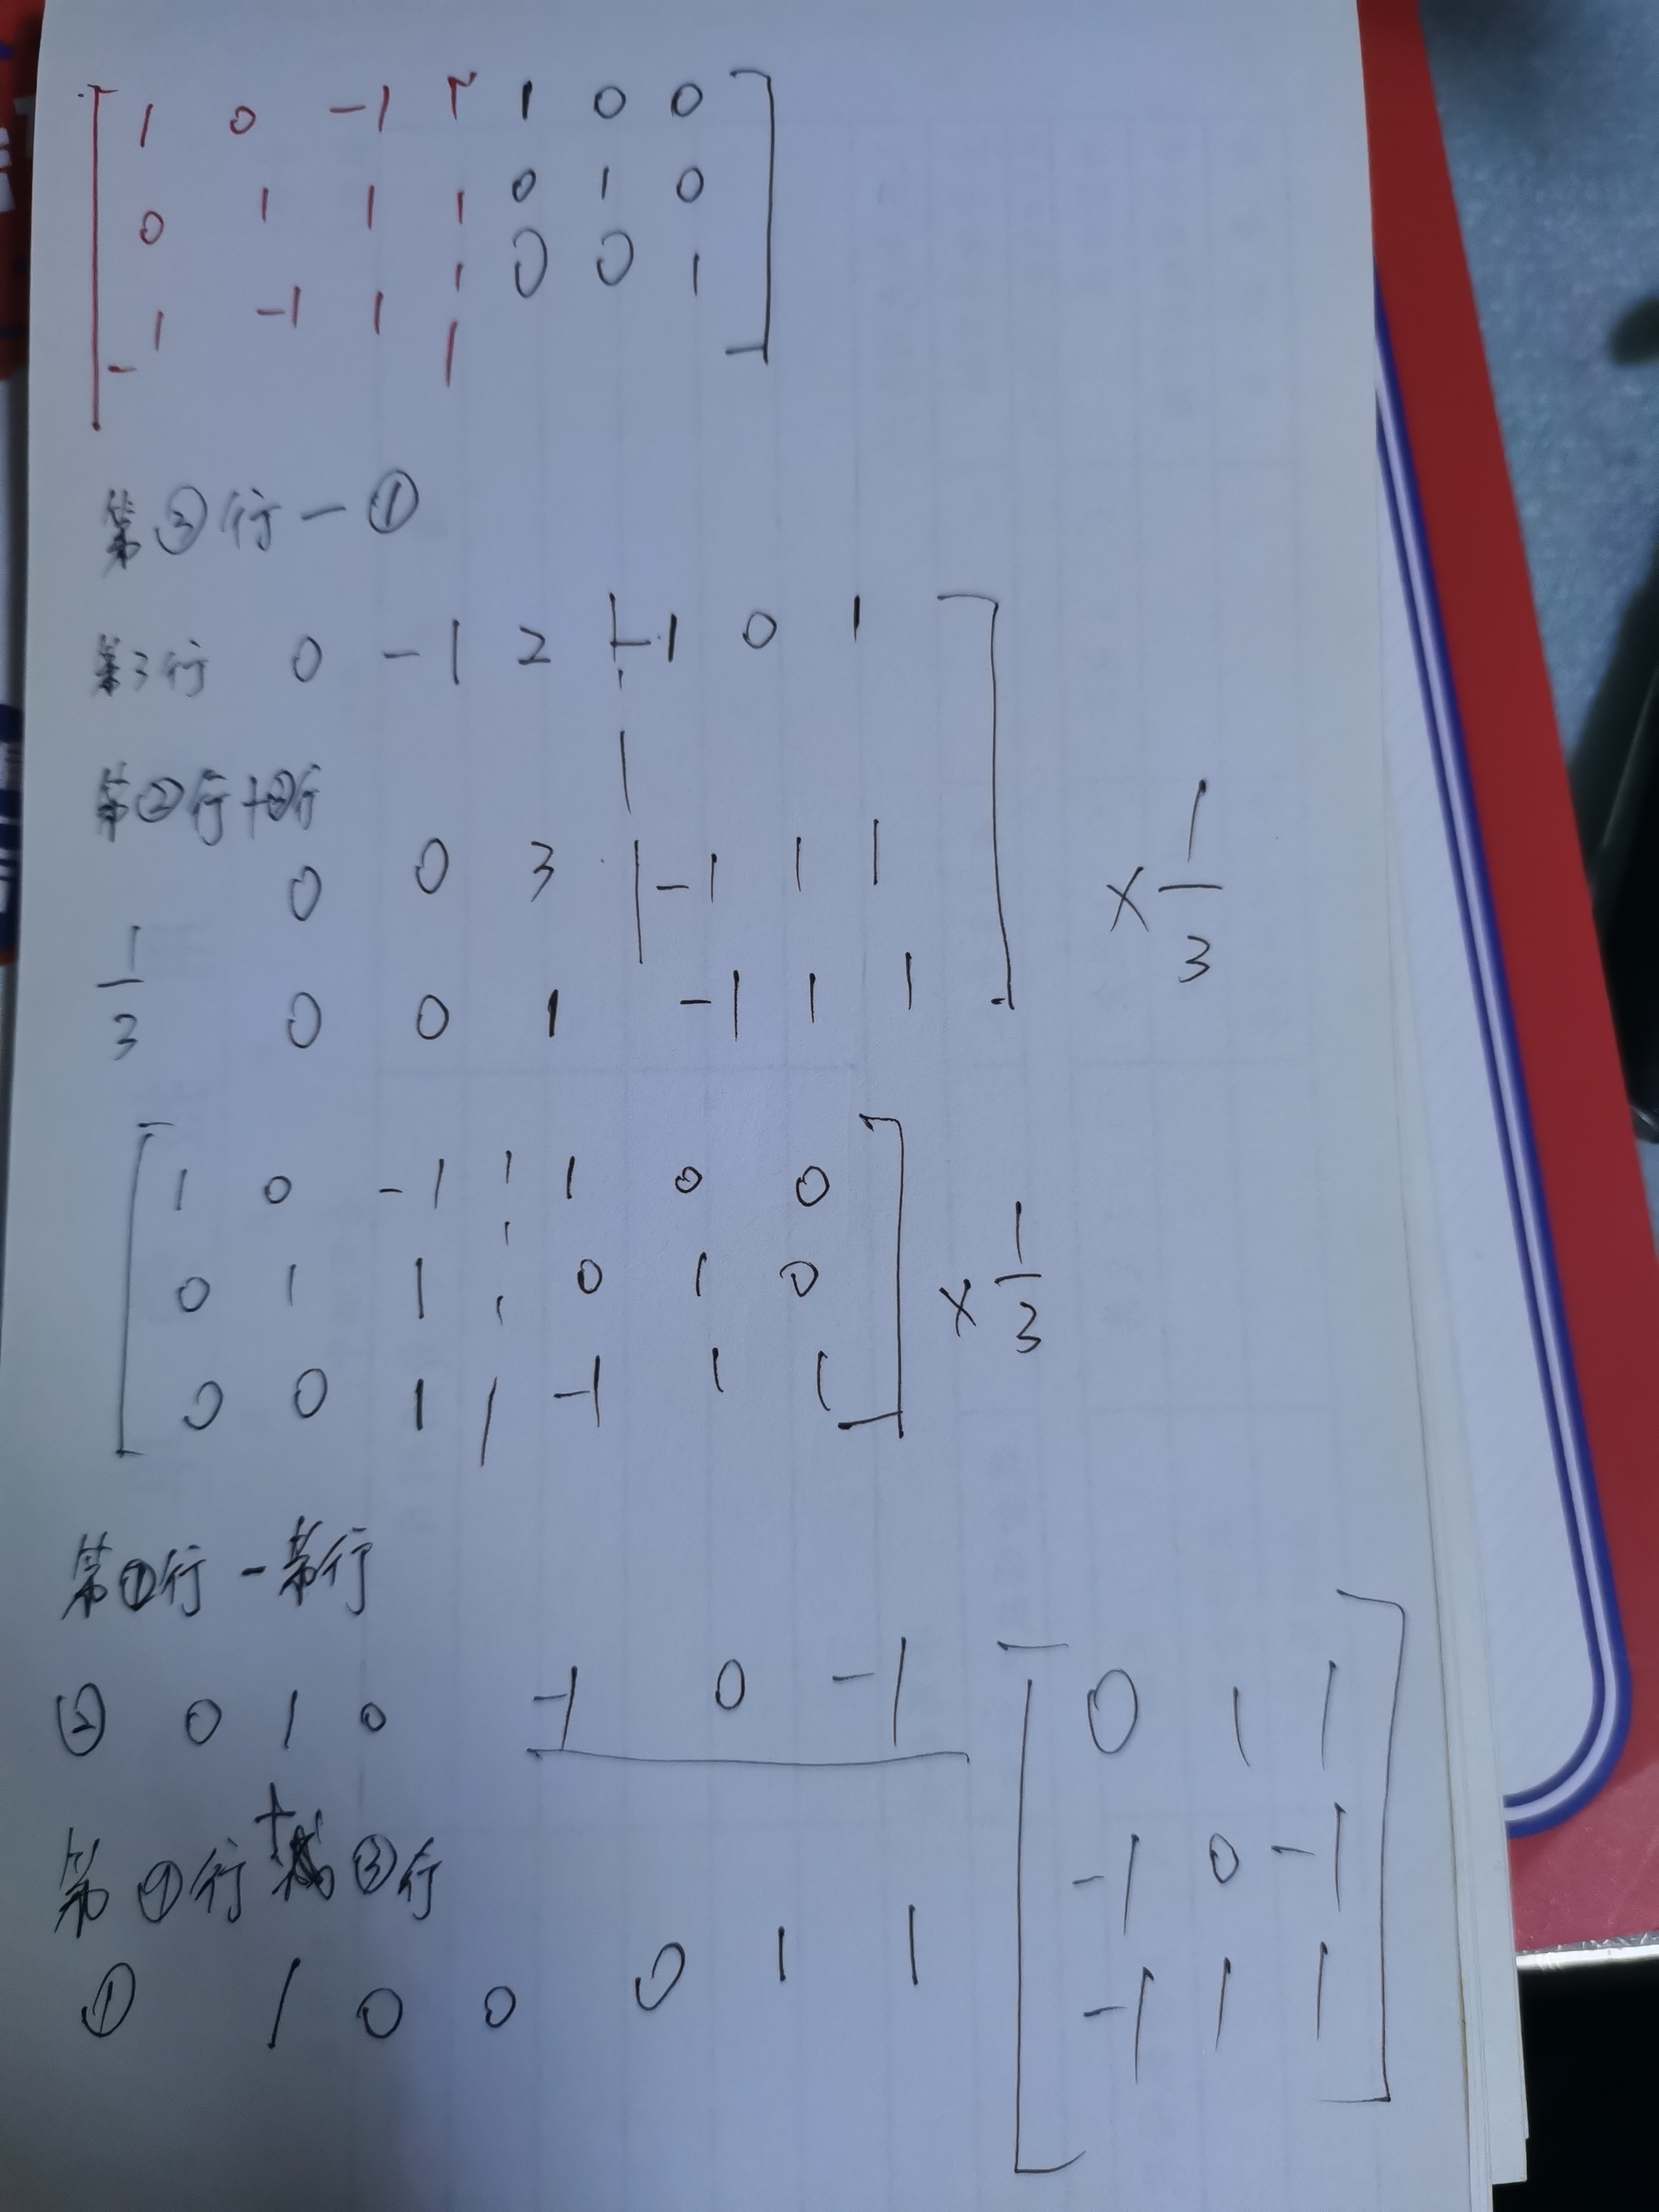 1 0 -1 1 0 0
0 1 1 0 1 0
1 -1 1 0 0 1
第③行-①
第3行 0 -1 2 -1 0 1
第②行+③行
0 0 3 -1 1 1 × 1/3
1/3 0 0 1 -1 1 1
1 0 -1 1 0 0
0 1 1 0 1 0 × 1/3
0 0 1 -1 1 1
第②行-第行
② 0 1 0 -1 0 -1
第①行+③行
① 1 0 0 0 1 1
0 1 1
-1 0 -1
-1 1 1